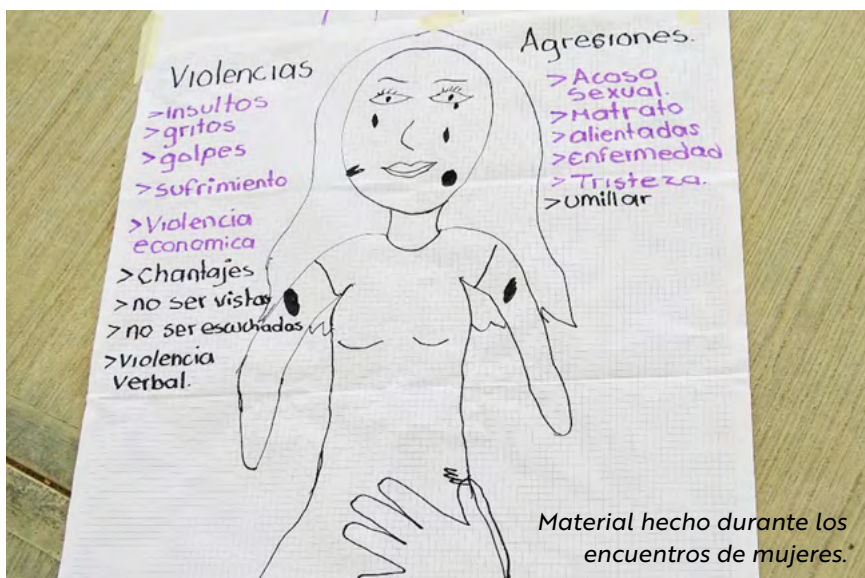 Violencias
>insultos
>gritos
>golpes
>sufrimiento
>Violencia
economica
>Chantajes
>no ser vistas
>no ser escuchadas
>Violencia
verbal.
Agresiones.
>Acoso
sexual.
>Matrato
>alientadas
>Enfermedad
>Tristeza.
>umillar
Material hecho durante los
encuentros de mujeres.